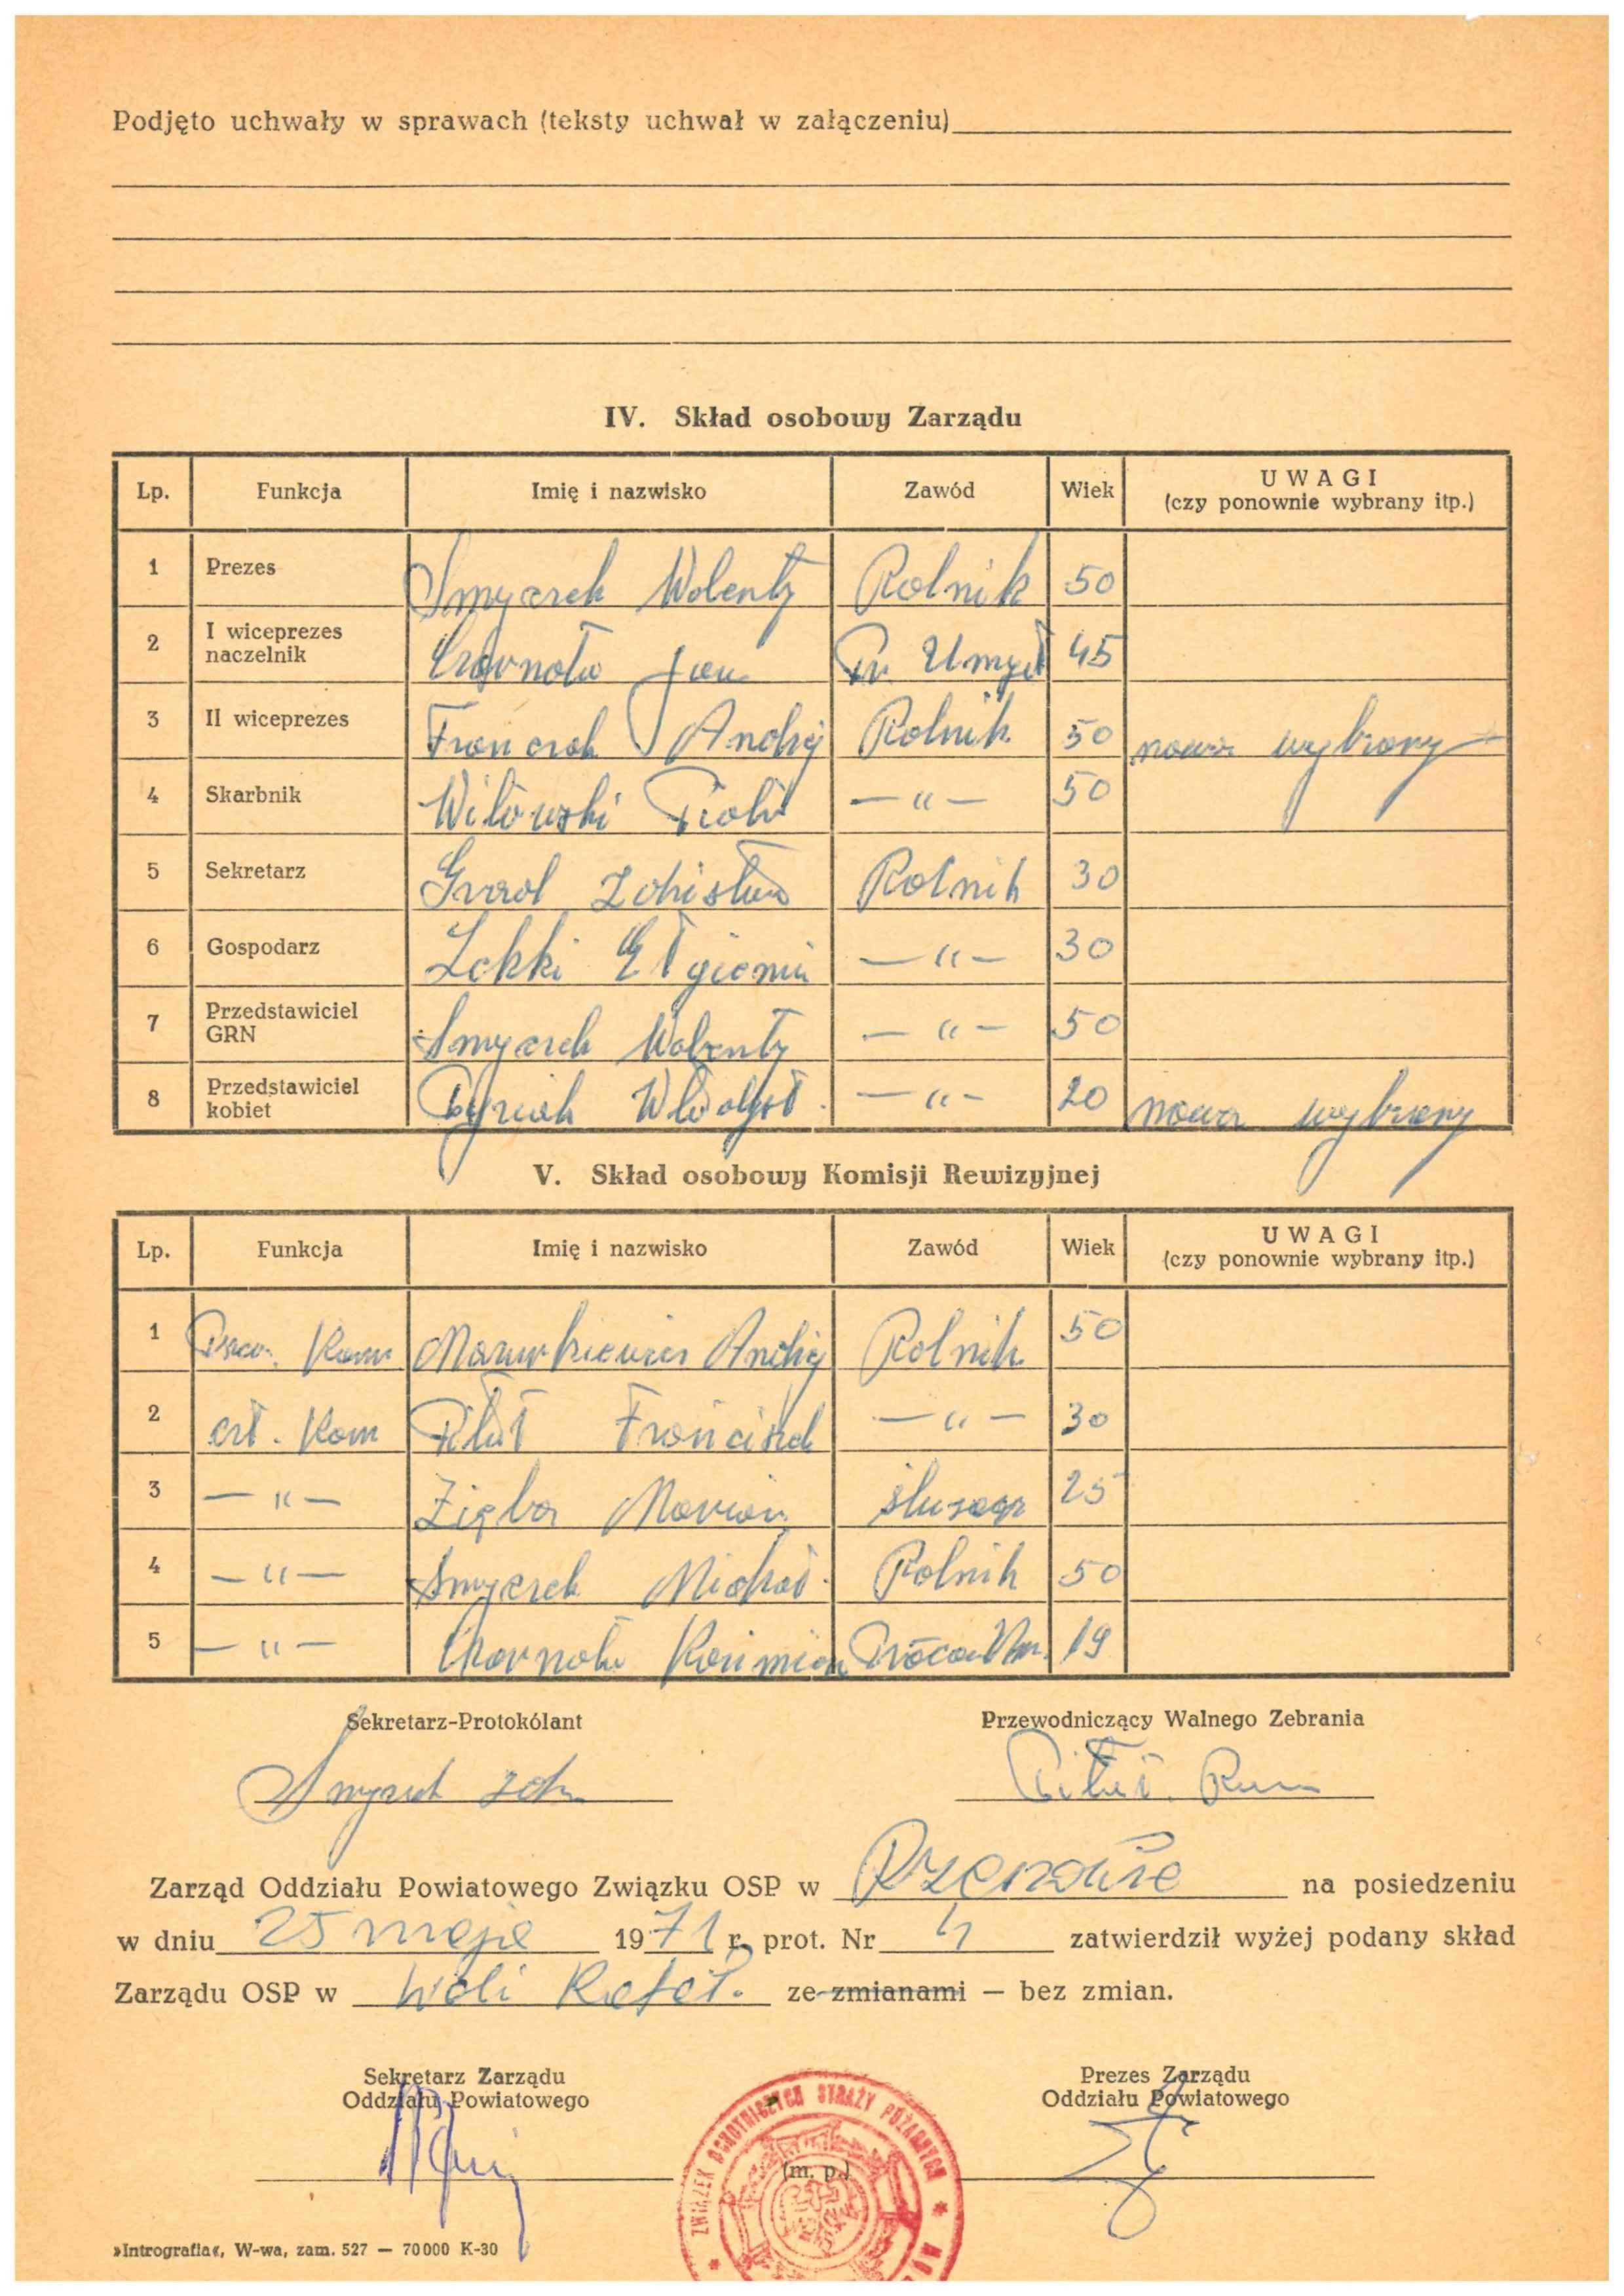 Podjęto uchwały w sprawach (teksty uchwał w załączeniu)
IV. Skład osobowy Zarządu
Lp. Funkcja Imię i nazwisko Zawód Wiek UWAGI (czy ponownie wybrany itp.)
1 Prezes Smyczek Wolenty Rolnik 50
2 I wiceprezes naczelnik Czarnota Jan Pr. Umysł 45
3 II wiceprezes Andrzej Rolnik 50 nowo wybrany
4 Skarbnik Piotr —"— 50
5 Sekretarz Rolnik 30
6 Gospodarz —"— 30
7 Przedstawiciel GRN Smyczek Walenty —"— 50
8 Przedstawiciel kobiet —"— 20 nowo wybrany
V. Skład osobowy Komisji Rewizyjnej
Lp. Funkcja Imię i nazwisko Zawód Wiek UWAGI (czy ponownie wybrany itp.)
1 Kom Mazurkiewicz Andrzej Rolnik 50
2 czł. Kom Pituś Franciszek —"— 30
3 —"— Zięba Marian ślusarz 25
4 —"— Smyczek Michał Rolnik 50
5 —"— Czarnota Kazimierz Praca Um. 19
Sekretarz-Protokólant Przewodniczący Walnego Zebrania
Zarząd Oddziału Powiatowego Związku OSP w Rzeszowie na posiedzeniu
w dniu 25 maja 1971 r. prot. Nr 4 zatwierdził wyżej podany skład
Zarządu OSP w Woli Rafał. ze zmianami — bez zmian.
Sekretarz Zarządu Prezes Zarządu
Oddziału Powiatowego Oddziału Powiatowego
ZWIĄZEK OCHOTNICZYCH STRAŻY POŻARNYCH
(m. p.)
»Intrografia«, W-wa, zam. 527 — 70000 K-30